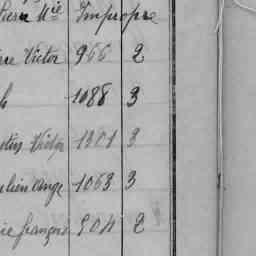 Pierre M^ie Impropre
re Victor 966 2
h 1088 3
tin Victor 1301 3
lien Ange 1063 3
ie françois 904 2